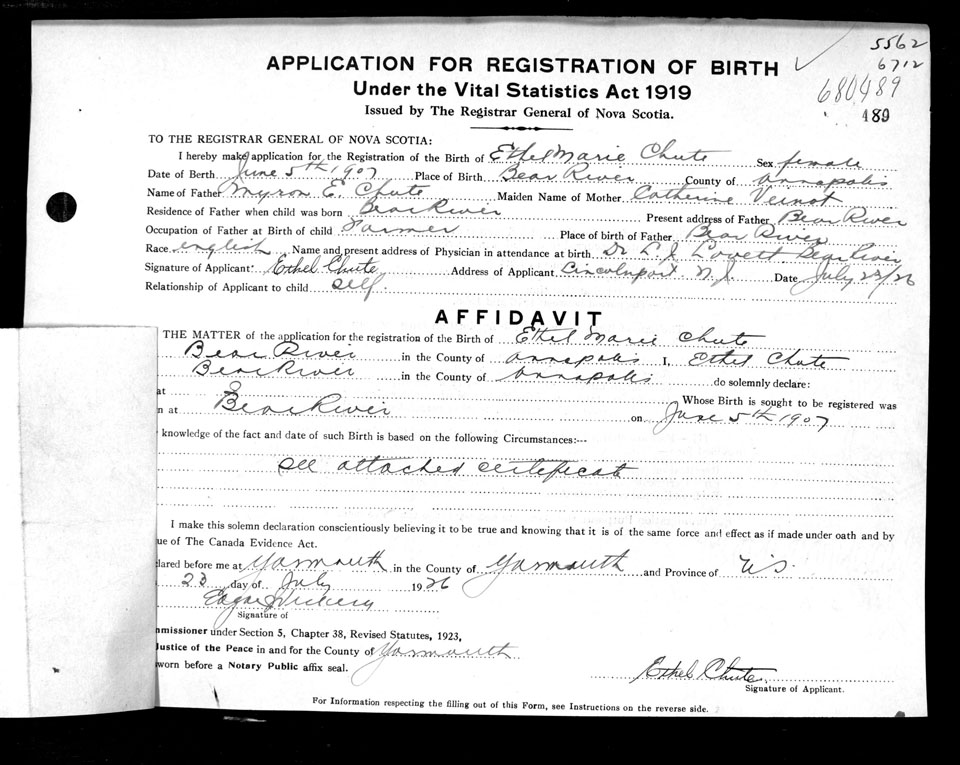 5562
6712
680489
489
APPLICATION FOR REGISTRATION OF BIRTH
Under the Vital Statistics Act 1919
Issued by The Registrar General of Nova Scotia.
TO THE REGISTRAR GENERAL OF NOVA SCOTIA:
I hereby make application for the Registration of the Birth of Ethel Marie Chute Sex female
Date of Berth June 5th 1907 Place of Birth Bear River County of Annapolis
Name of Father Myron E. Chute Maiden Name of Mother Catherine Veinot
Residence of Father when child was born Bear River Present address of Father Bear River
Occupation of Father at Birth of child Farmer Place of birth of Father Bear River
Race english Name and present address of Physician in attendance at birth Dr L. J Lovett Bear River
Signature of Applicant: Ethel Chute Address of Applicant Lincolnport N.S Date July 23/26
Relationship of Applicant to child self.
AFFIDAVIT
THE MATTER of the application for the registration of the Birth of Ethel Marie Chute
Bear River in the County of Annapolis I, Ethel Chute
Bear River in the County of Annapolis do solemnly declare:
at Whose Birth is sought to be registered was
n at Bear River on June 5th 1907
knowledge of the fact and date of such Birth is based on the following Circumstances:---
see attached certificate
I make this solemn declaration conscientiously believing it to be true and knowing that it is of the same force and effect as if made under oath and by
ue of The Canada Evidence Act.
lared before me at Yarmouth in the County of Yarmouth and Province of N.S.
23 day of July 1926
Signature of
mmissioner under Section 5, Chapter 38, Revised Statutes, 1923,
Justice of the Peace in and for the County of Yarmouth
worn before a Notary Public affix seal.
Ethel Chute
Signature of Applicant.
For Information respecting the filling out of this Form, see Instructions on the reverse side.